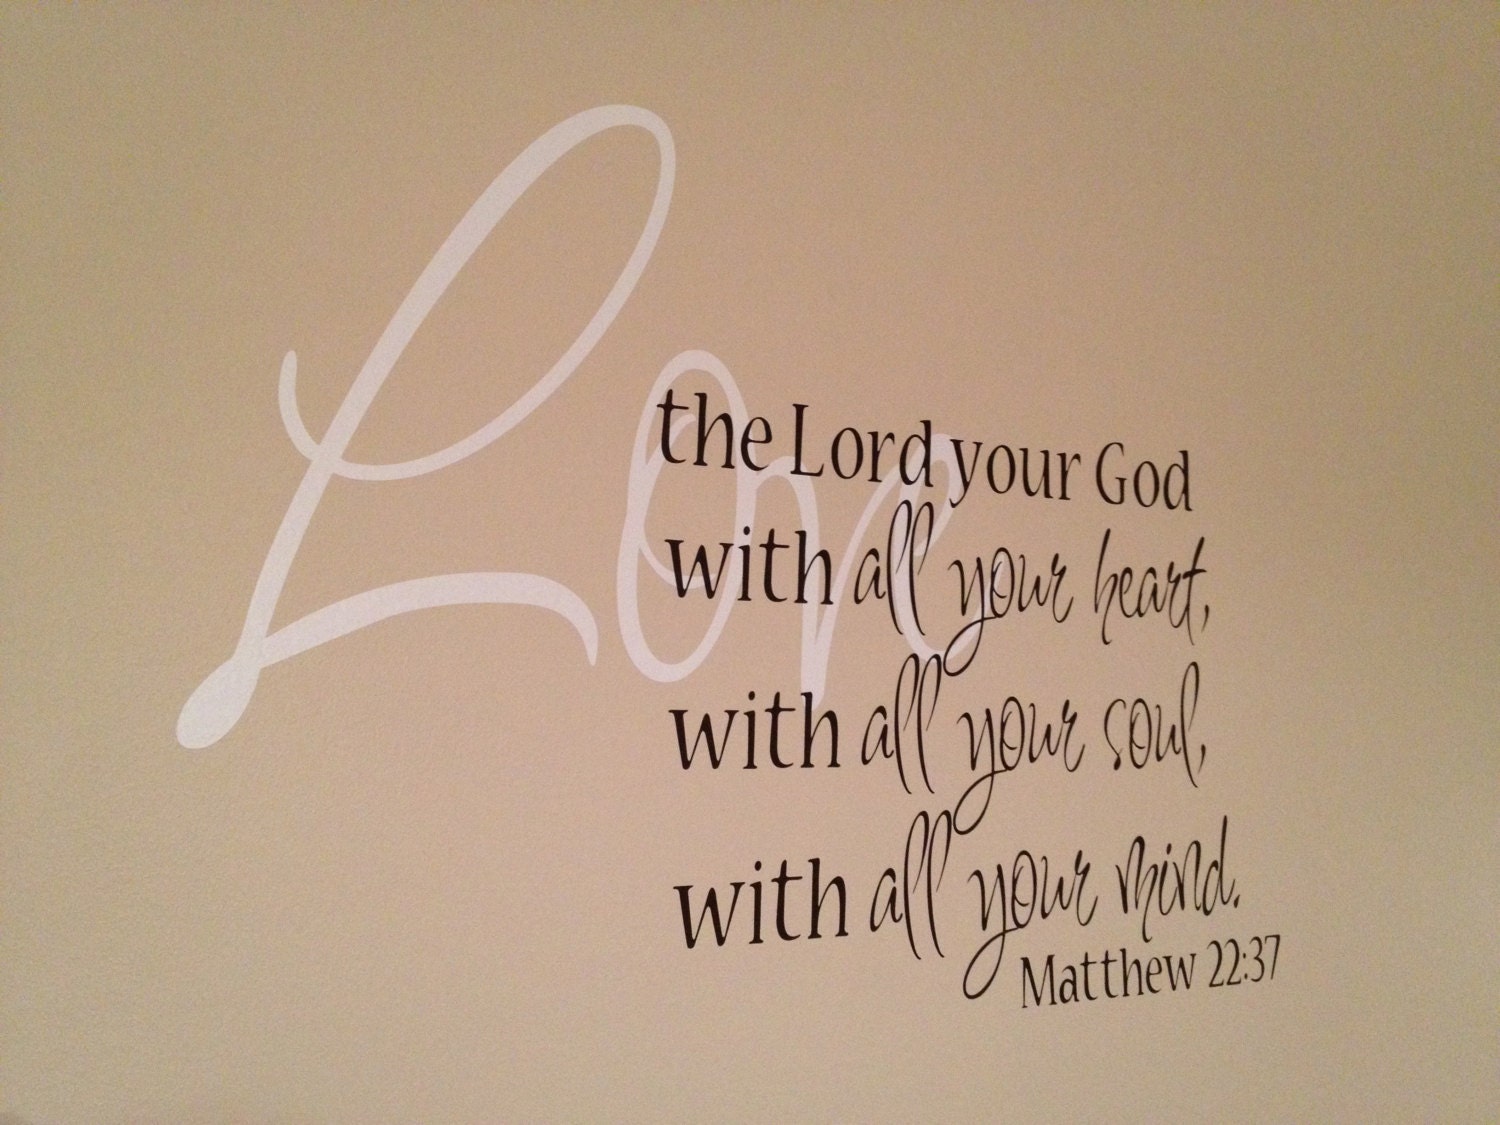 Love
the Lord your God
with all your heart,
with all your soul,
with all your mind.
Matthew 22:37